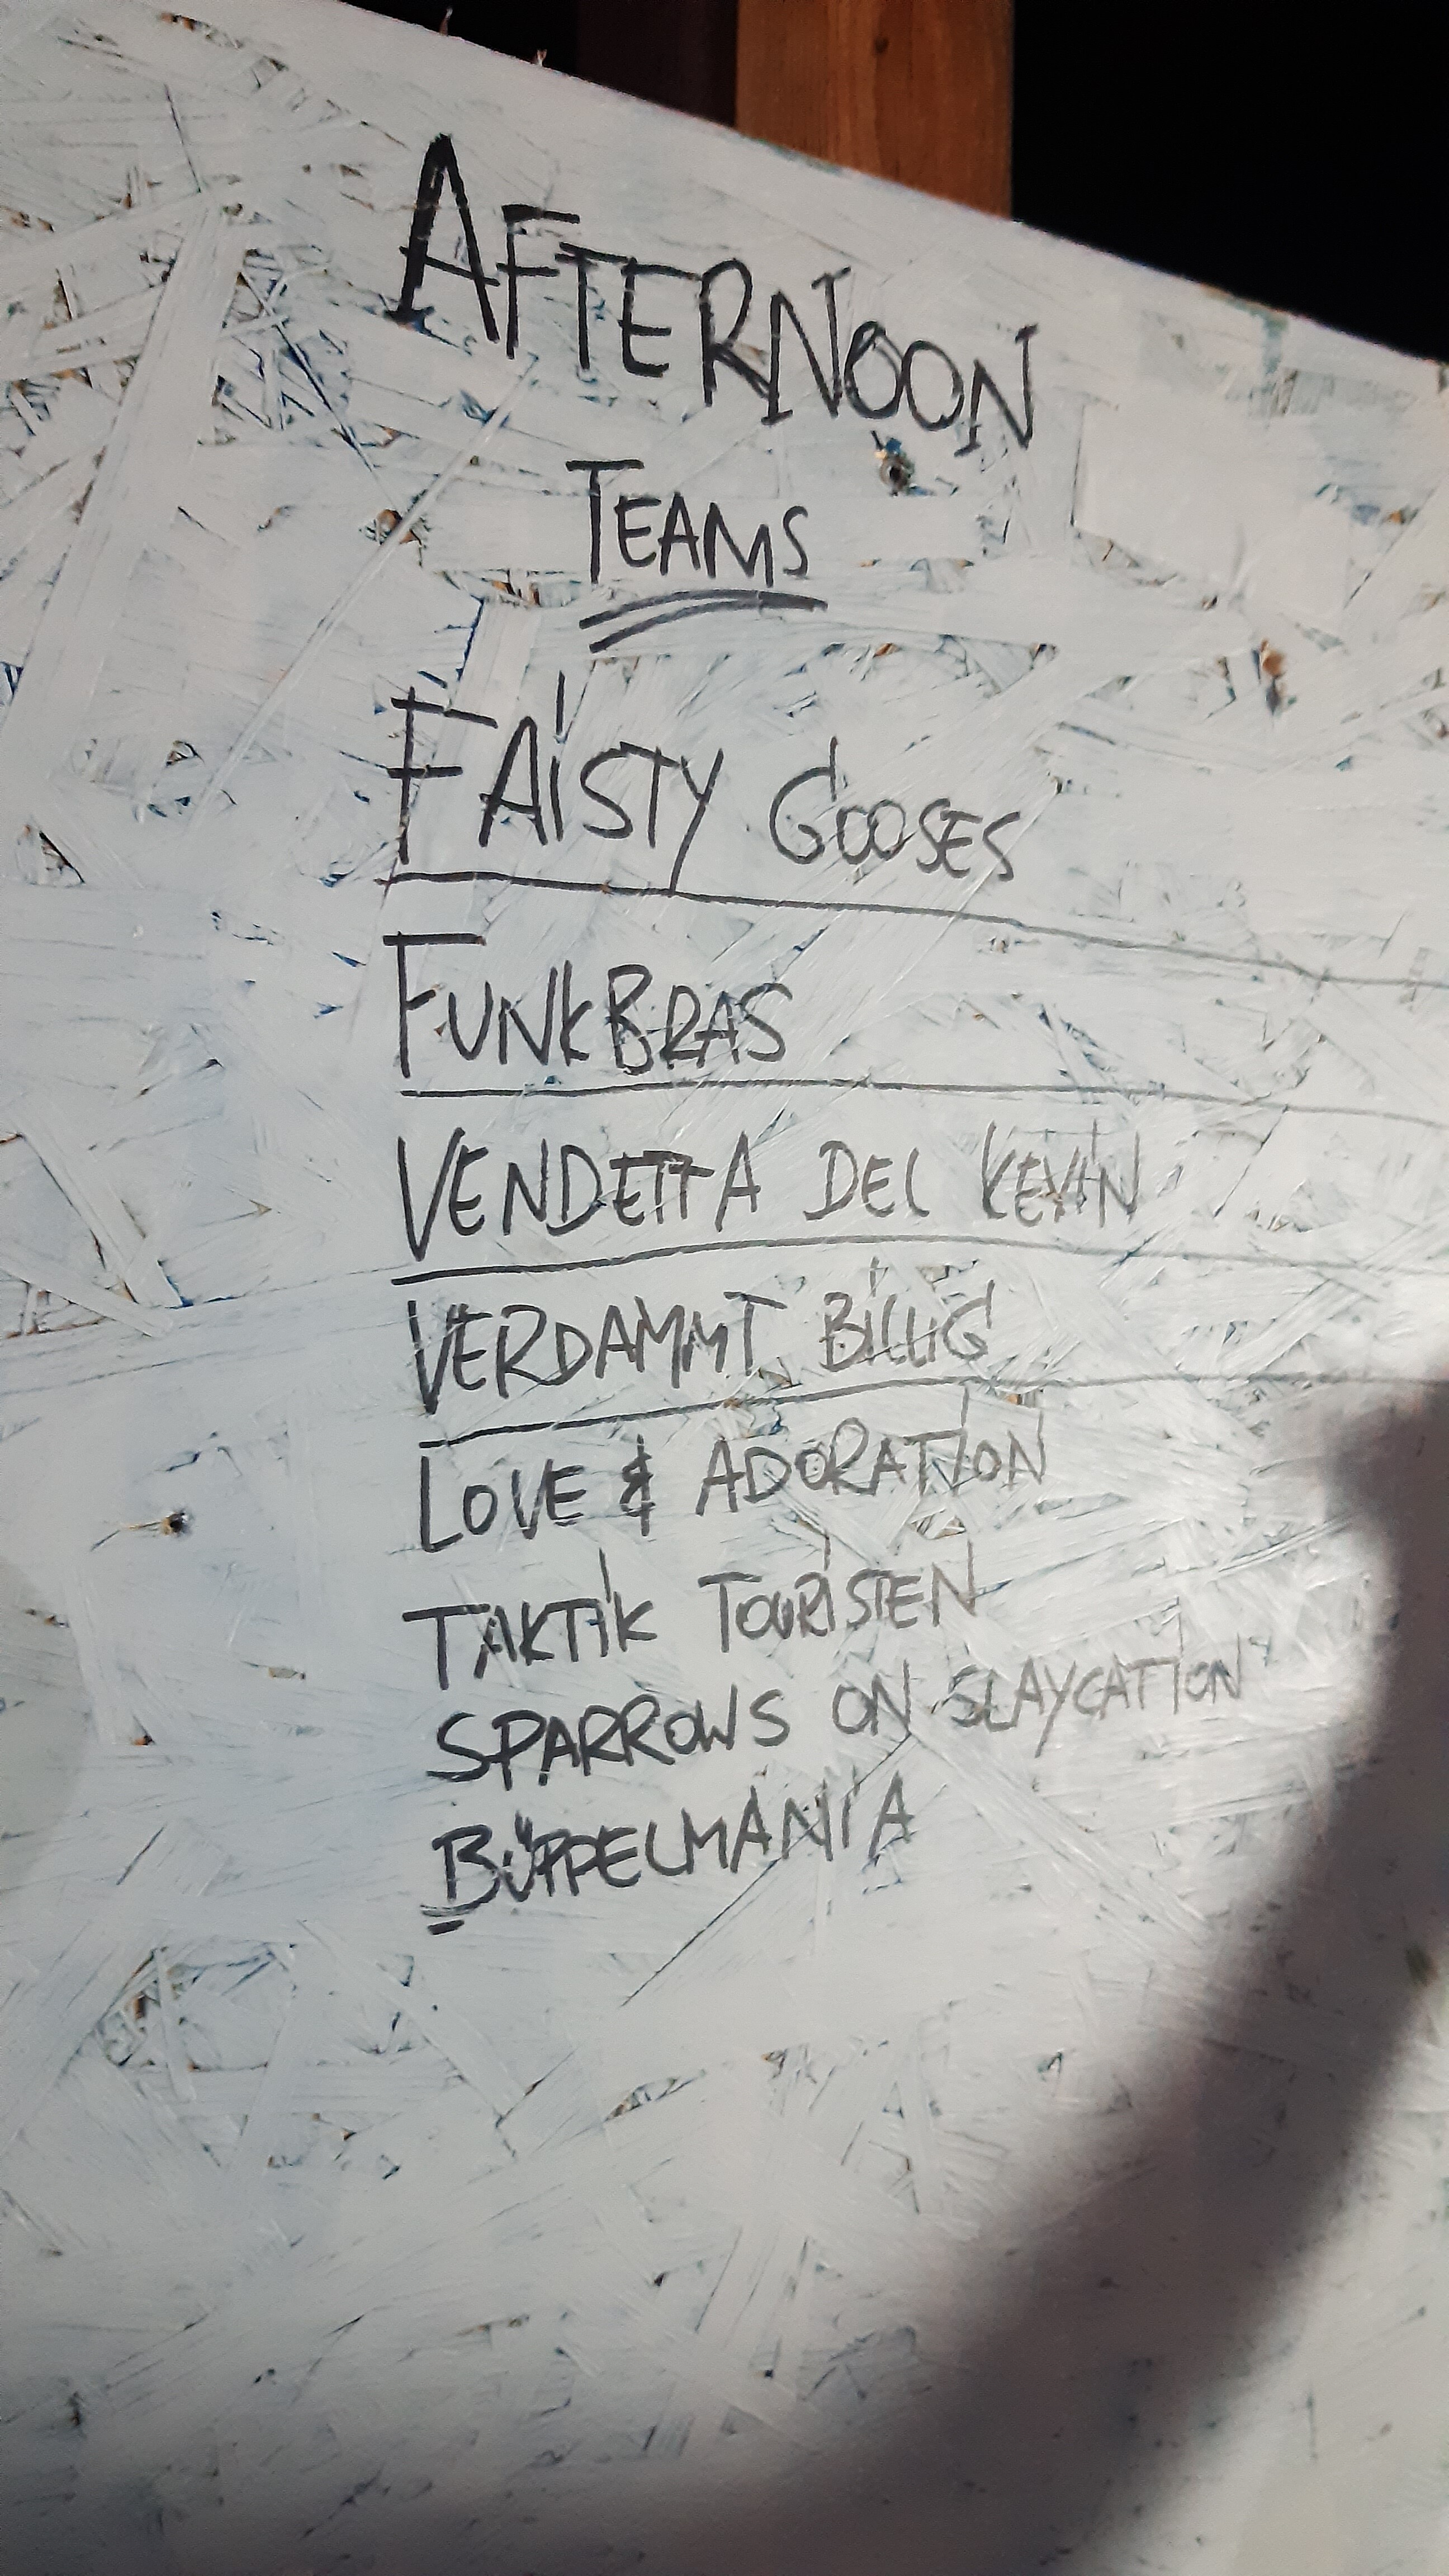 AFTERNOON
TEAMS
FAISTY GOOSES
FUNKBRAS
VENDETTA DEL KEVIN
VERDAMMT BILLIG
LOVE & ADORATION
TAKTIK TOURISTEN
SPARROWS ON SLAYCATION
BÜPPELMANIA